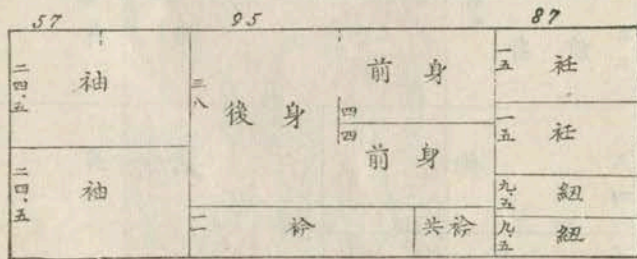 57 95 87
二四.五 袖
二四.五 袖
三八 後身
四 前身
四 前身
一一 衿
共衿
一五 衽
一五 衽
九.五 紐
九.五 紐